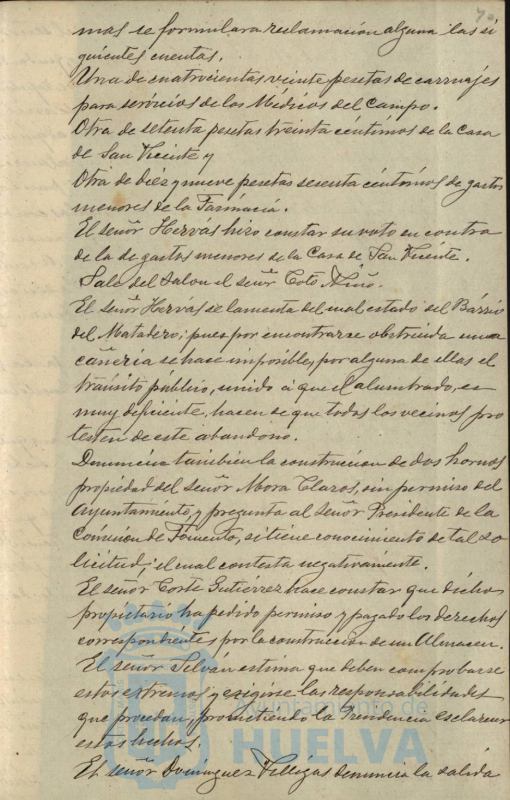 mas se formulara reclamación alguna las si
guientes cuentas.
Una de cuatrocientas veinte pesetas de carruajes
para servicios de los Médicos del Campo.
Otra de setenta pesetas treinta céntimos de la Casa
de San Vicente y
Otra de diez y nueve pesetas sesenta céntimos de gastos
menores de la Farmacia.
El señor Hervás hizo constar su voto en contra
de la de gastos menores de la Casa de San Vicente.
Sale del Salon el señor Coto Niño.
El señor Hervás se lamenta del mal estado del Bárrio
del Matadero; pues por encontrarse obstruida una
cañeria se hace imposible, por alguna de ellas el
tránsito público, unido á que el alumbrado, es
muy deficiente, hacen de que todos los vecinos pro
testen de este abandono.
Denuncia tambien la construccion de dos hornos
propiedad del señor Mora Claros, sin permiso del
Ayuntamiento, y pregunta al señor Presidente de la
Comision de Fomento, si tiene conocimiento de tal so
licitud; el cual contesta negativamente.
El señor Corte Gutiérrez hace constar que dicho
propietario ha pedido permiso y pagado los derechos
correspondientes por la construccion de un Almacen.
El señor Selván estima que deben comprobarse
estos extremos y exigirse las responsabilidades
que procedan, prometiendo la Presidencia esclarecer
estos hechos.
El señor Dominguez Villegas denuncia la salida
Ayuntamiento de
HUELVA